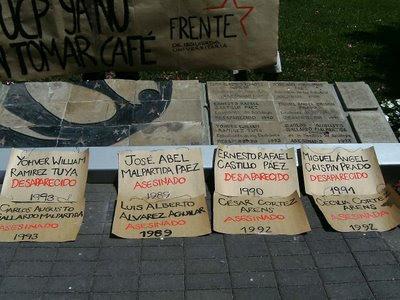 UCP YA NO
N TOMAR CAFÉ
FRENTE
DE IZQUIERDA
UNIVERSITARIA
ERNESTO RAFAEL
CASTILLO PAEZ
1990
YOHVER WILLIAM
RAMIREZ TUYA
DESAPARECIDO
1993
CARLOS AUGUSTO
GALLARDO MALPARTIDA
ASESINADO
1993
JOSÉ ABEL
MALPARTIDA PÁEZ
ASESINADO
1989
LUIS ALBERTO
ALVAREZ AGUILAR
ASESINADO
1989
ERNESTO RAFAEL
CASTILLO PAEZ
DESAPARECIDO
1990
CÉSAR CORTEZ
ARENS
ASESINADO
1992
MIGUEL ÁNGEL
CRISPIN PRADO
DESAPARECIDO
1991
CECILIA CORTEZ
ARENS
ASESINADA
1992